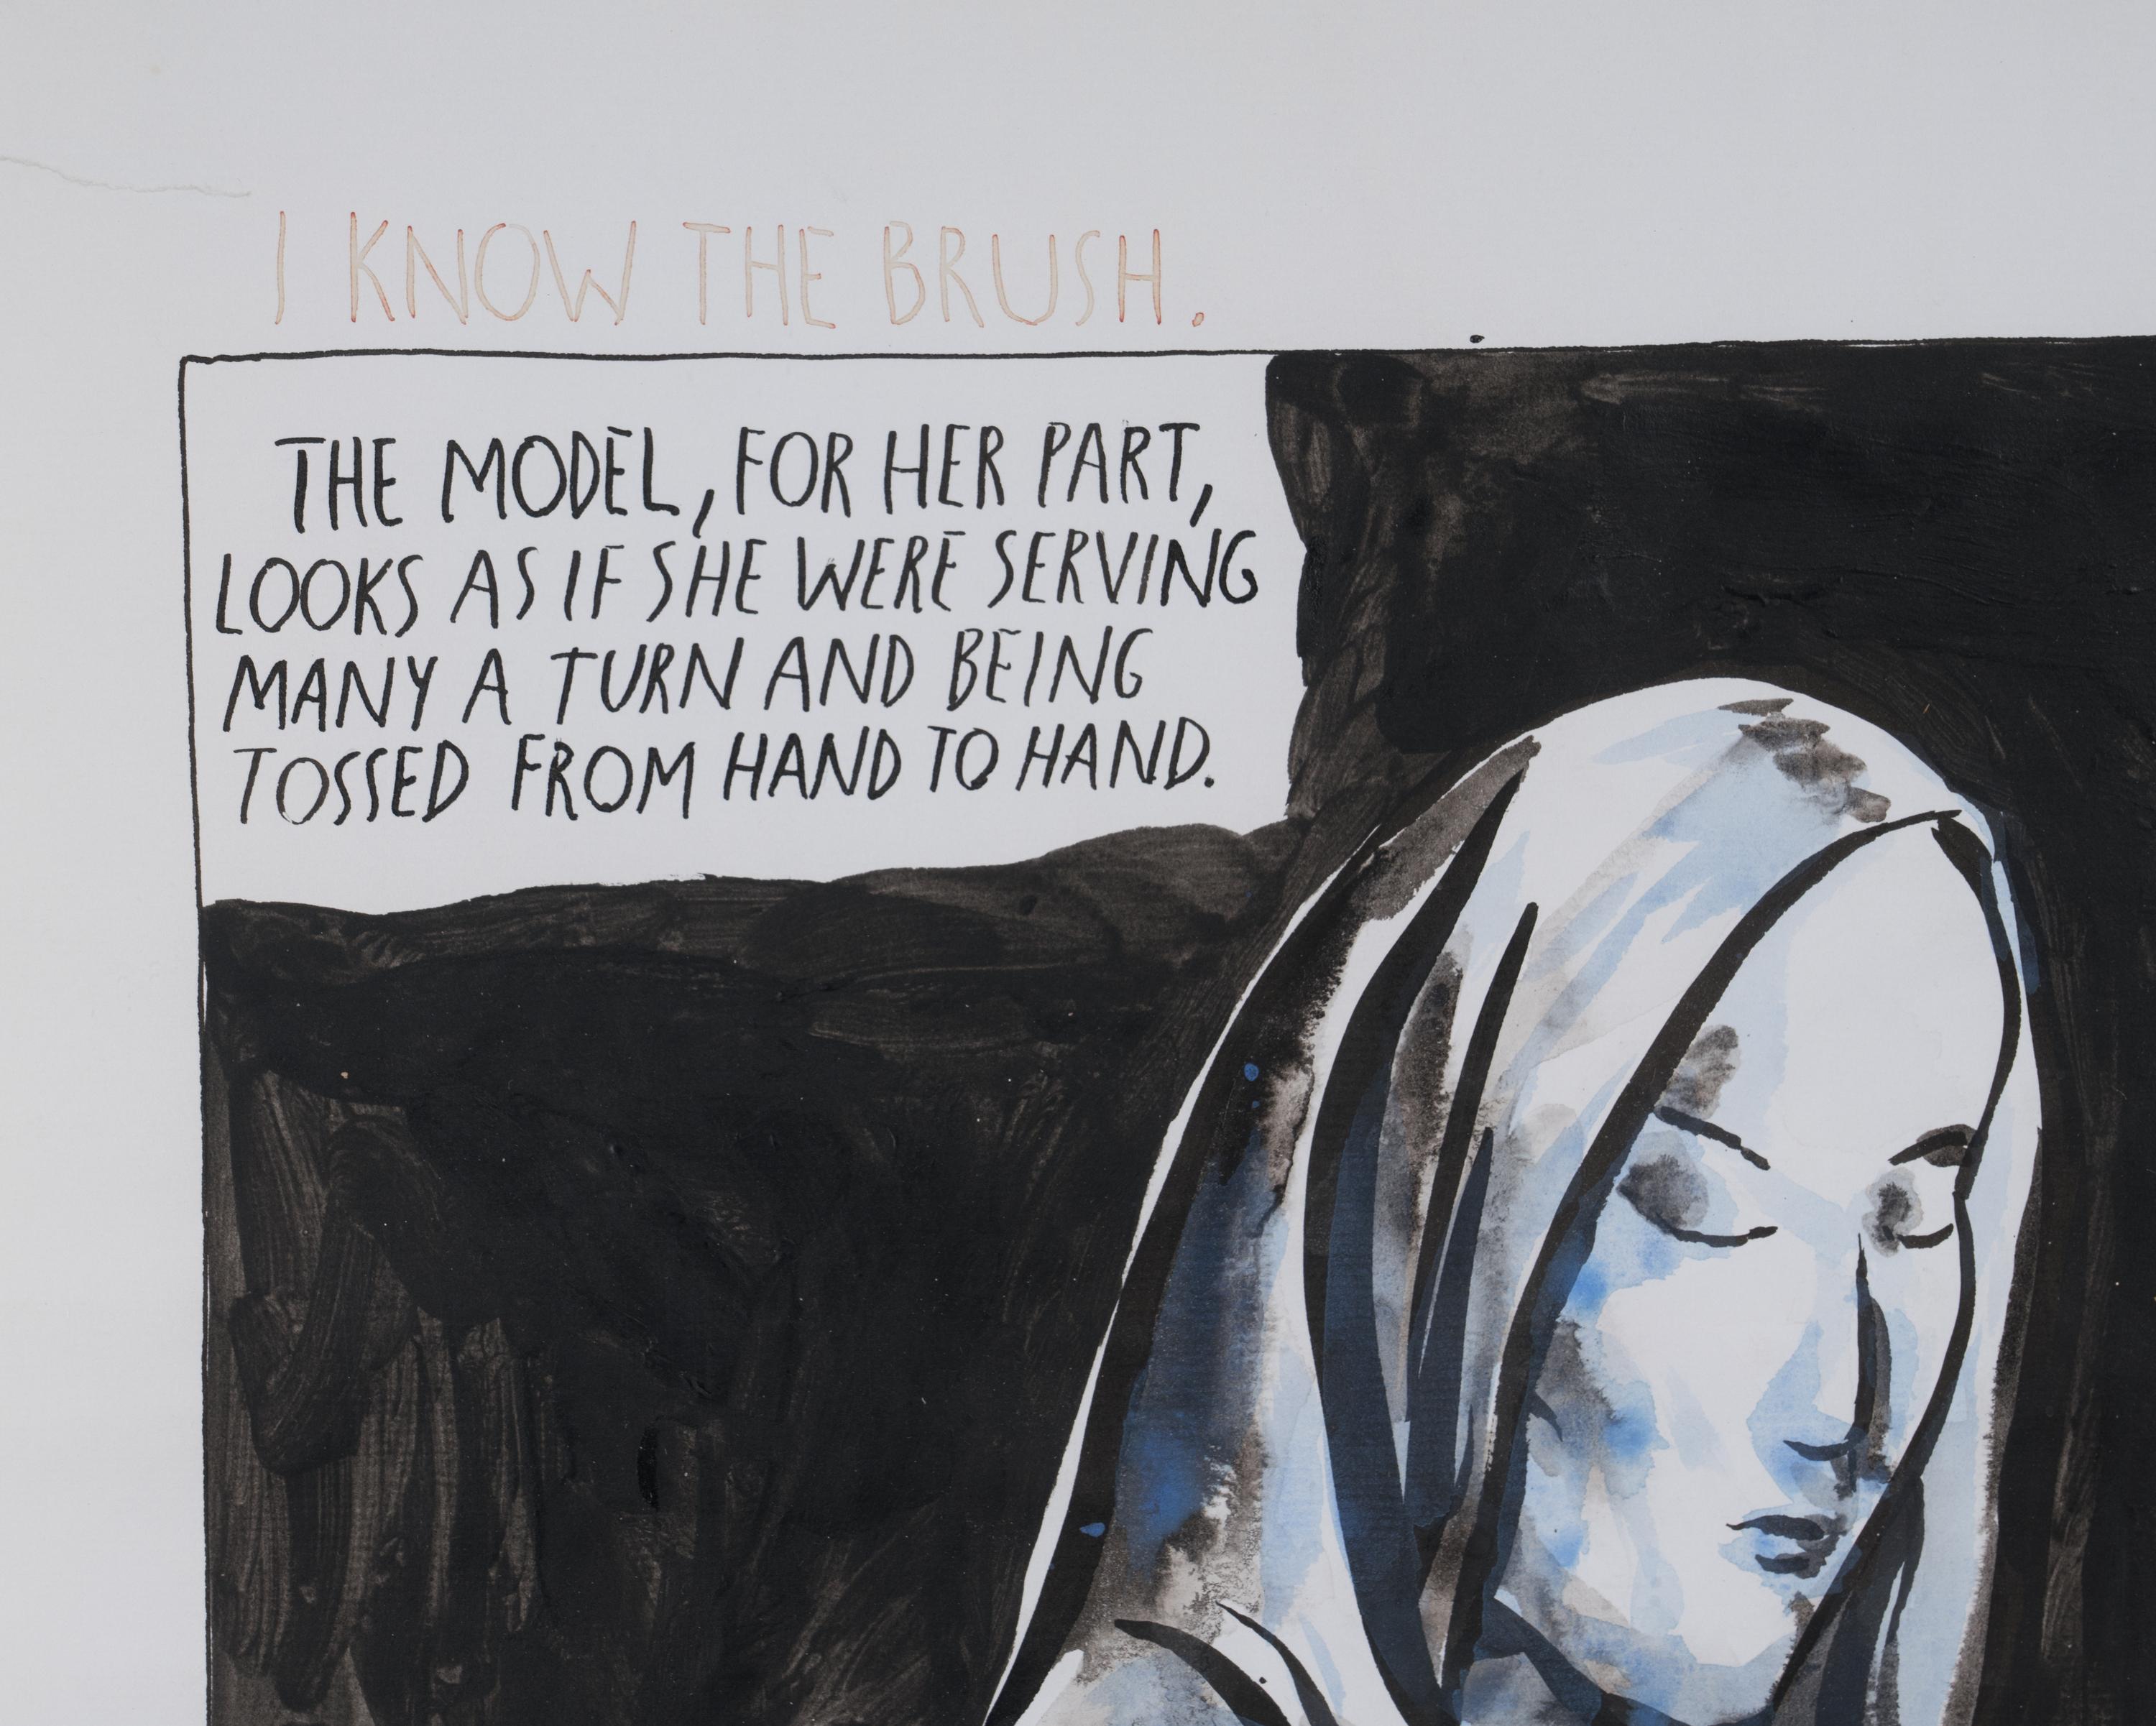 I KNOW THE BRUSH.
THE MODEL, FOR HER PART,
LOOKS AS IF SHE WERE SERVING
MANY A TURN AND BEING
TOSSED FROM HAND TO HAND.